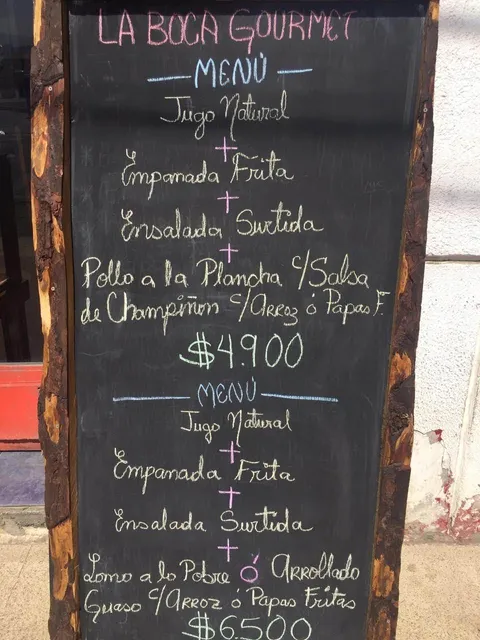 LA BOCA GOURMET
MENÚ
Jugo Natural
+
Empanada Frita
+
Ensalada Surtida
+
Pollo a la Plancha c/Salsa
de Champiñon c/Arroz ó Papas F.
$4.900
MENÚ
Jugo Natural
+
Empanada Frita
+
Ensalada Surtida
+
Lomo a lo Pobre ó Arrollado
Guaso c/Arroz ó Papas Fritas
$6.500